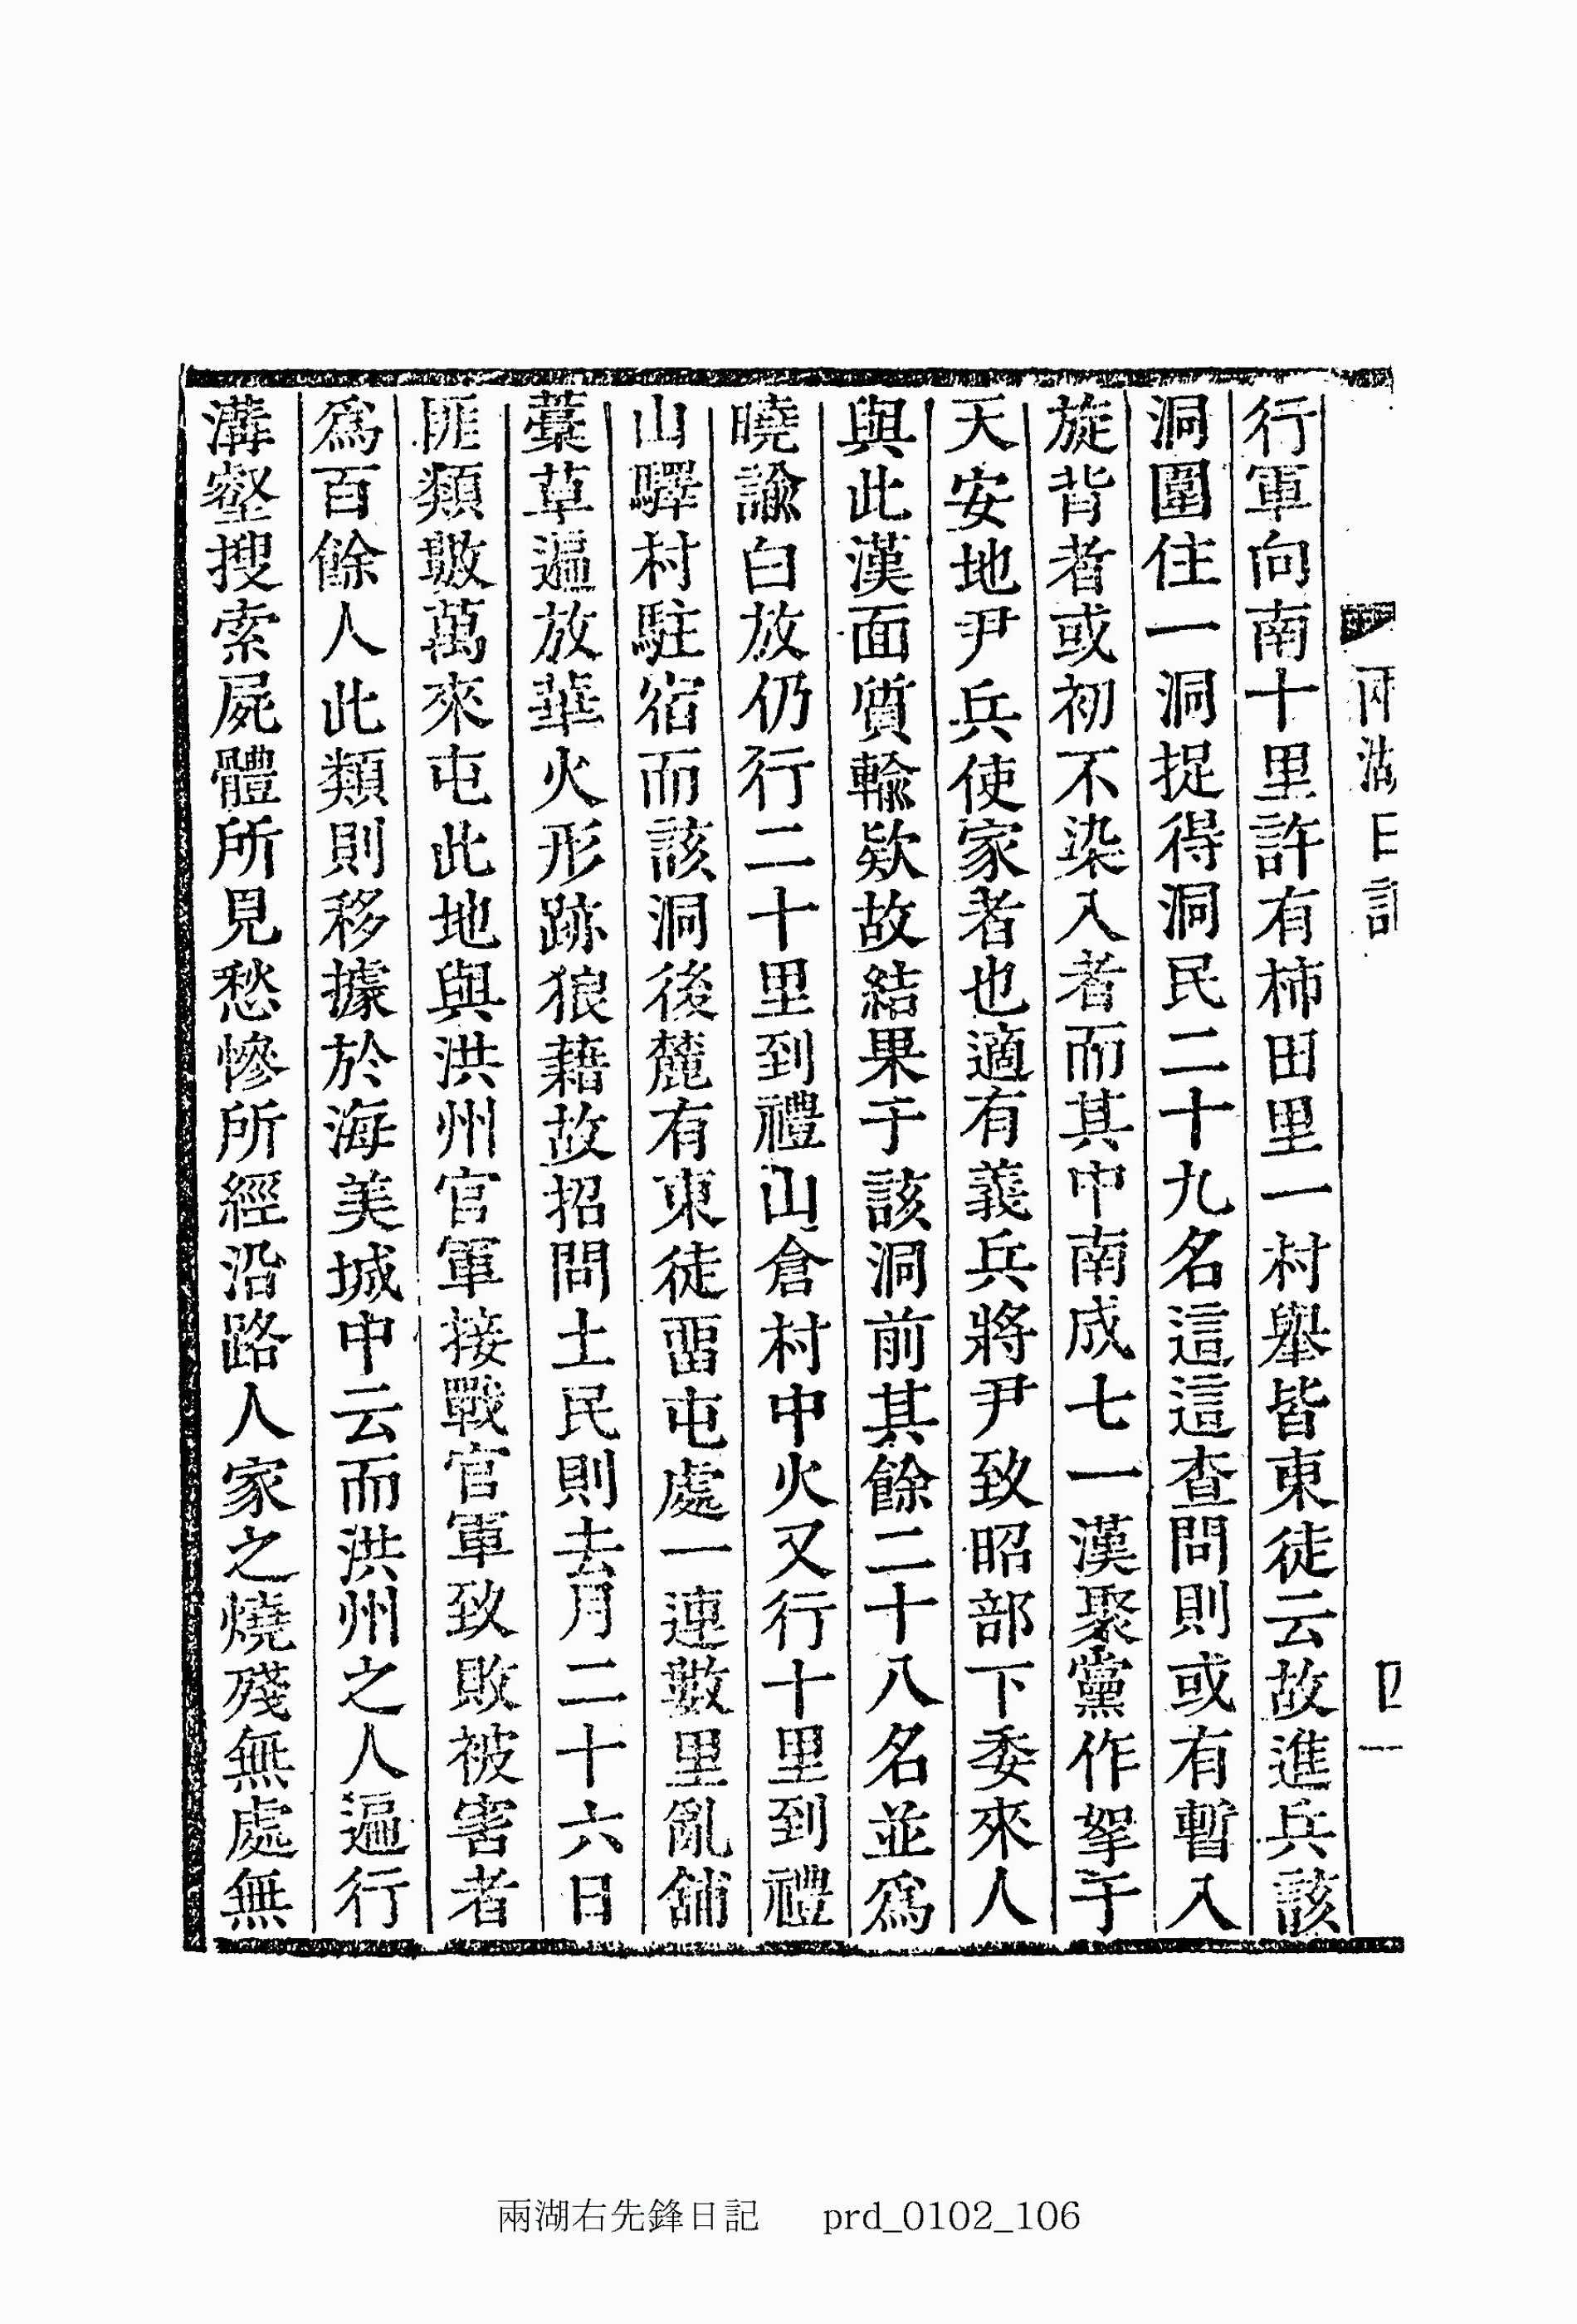 兩湖日記
四一
行軍向南十里許有柿田里一村擧皆東徒云故進兵該
洞圍住一洞捉得洞民二十九名這這查問則或有暫入
旋背者或初不染入者而其中南成七一漢聚黨作拏于
天安地尹兵使家者也適有義兵將尹致昭部下委來人
與此漢面質輸欵故結果于該洞前其餘二十八名並爲
曉諭白放仍行二十里到禮山倉村中火又行十里到禮
山驛村駐宿而該洞後麓有東徒畱屯處一連數里亂舖
藁草遍放篝火形跡狼藉故招問土民則去月二十六日
匪類數萬來屯此地與洪州官軍接戰官軍致敗被害者
爲百餘人此類則移據於海美城中云而洪州之人遍行
溝壑搜索屍體所見愁慘所經沿路人家之燒殘無處無
兩湖右先鋒日記 prd_0102_106